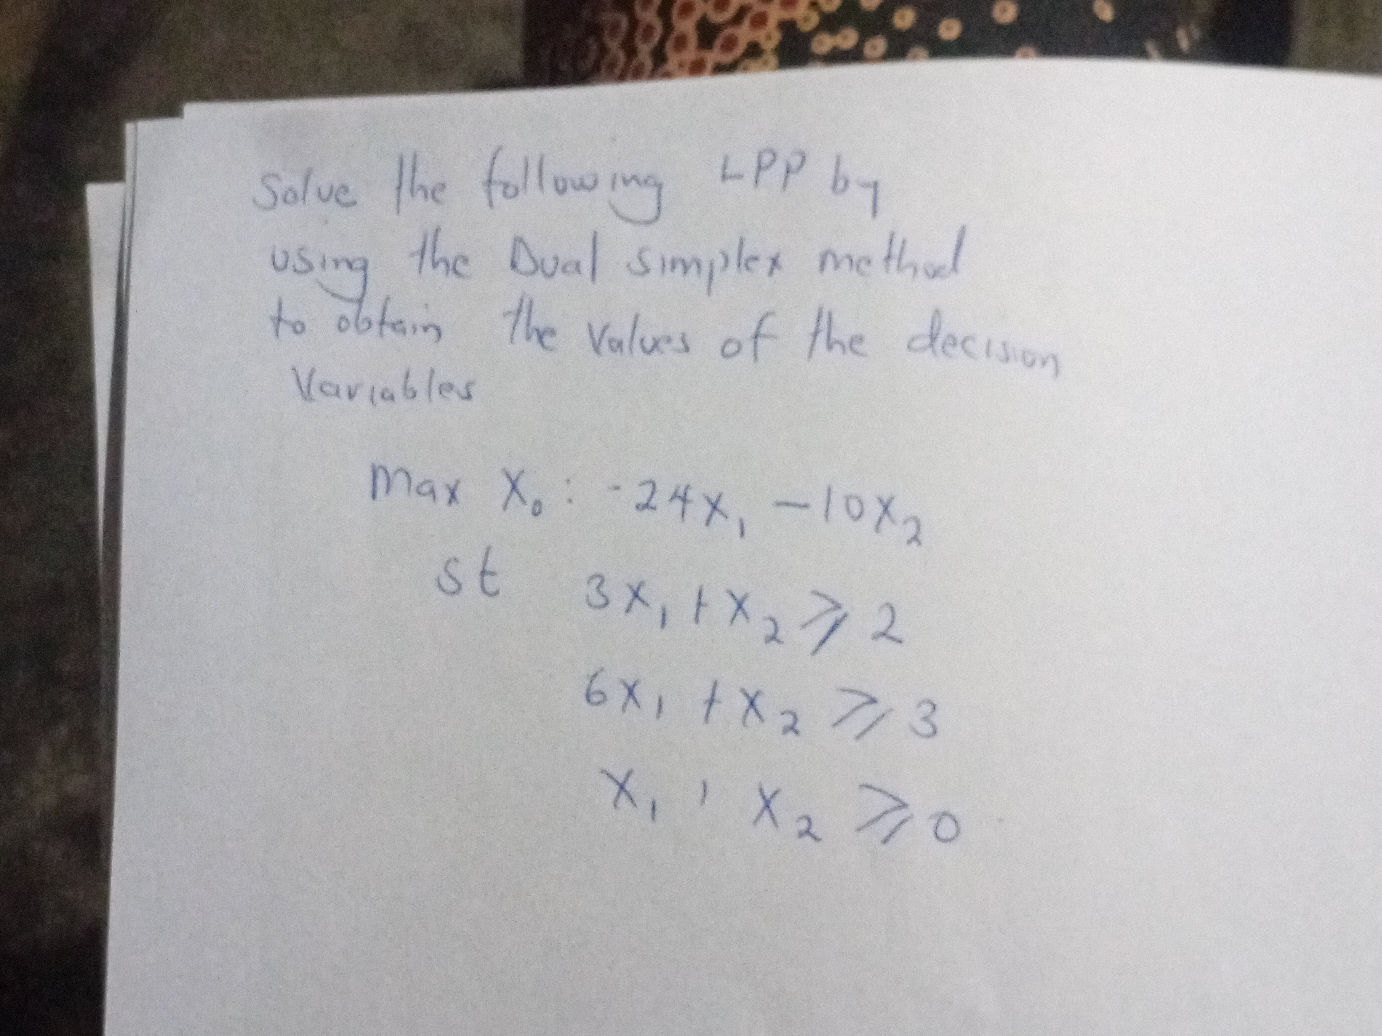 Solve the following LPP by
using the Dual simplex method
to obtain the values of the decision
Variables
Max X₀ : -24X₁ - 10X₂
st 3X₁ + X₂ ⩾ 2
6X₁ + X₂ ⩾ 3
X₁ , X₂ ⩾ 0